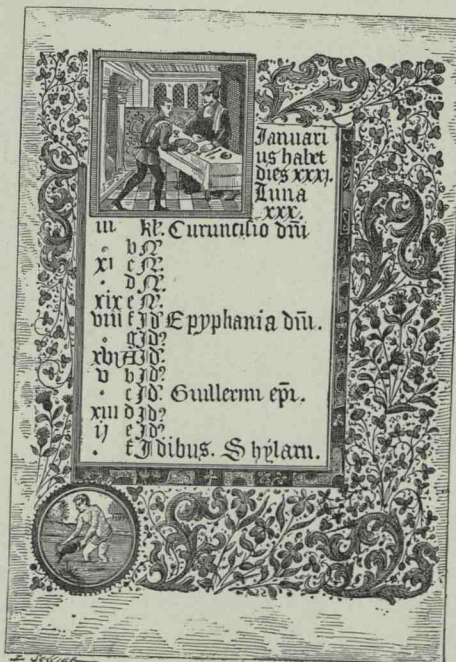 Januari
us habet
dies xxxj.
Luna
xxx.
iii kl'. Circuncisio dñi
b N'.
xi c N'.
d N'.
xix e N'.
viii f Id' Epyphania dñi.
g Id'
xvi A Id'.
v b Id'
c Id'. Guillermi epi.
xiii d Id'
ij e Id'.
f Idibus. S hylarii.